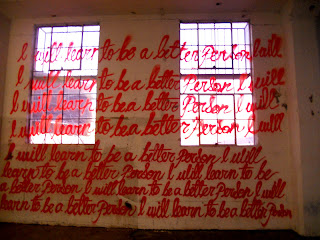 I will learn to be a better person I will
I will learn to be a better Person I will
I will learn to be a better Person I will
I will learn to be a better Person I will
I will learn to be a better Person I will
learn to be a better Person I will learn to be
a better Person I will learn to be a better Person I will
learn to be a better Person I will learn to be a better Person